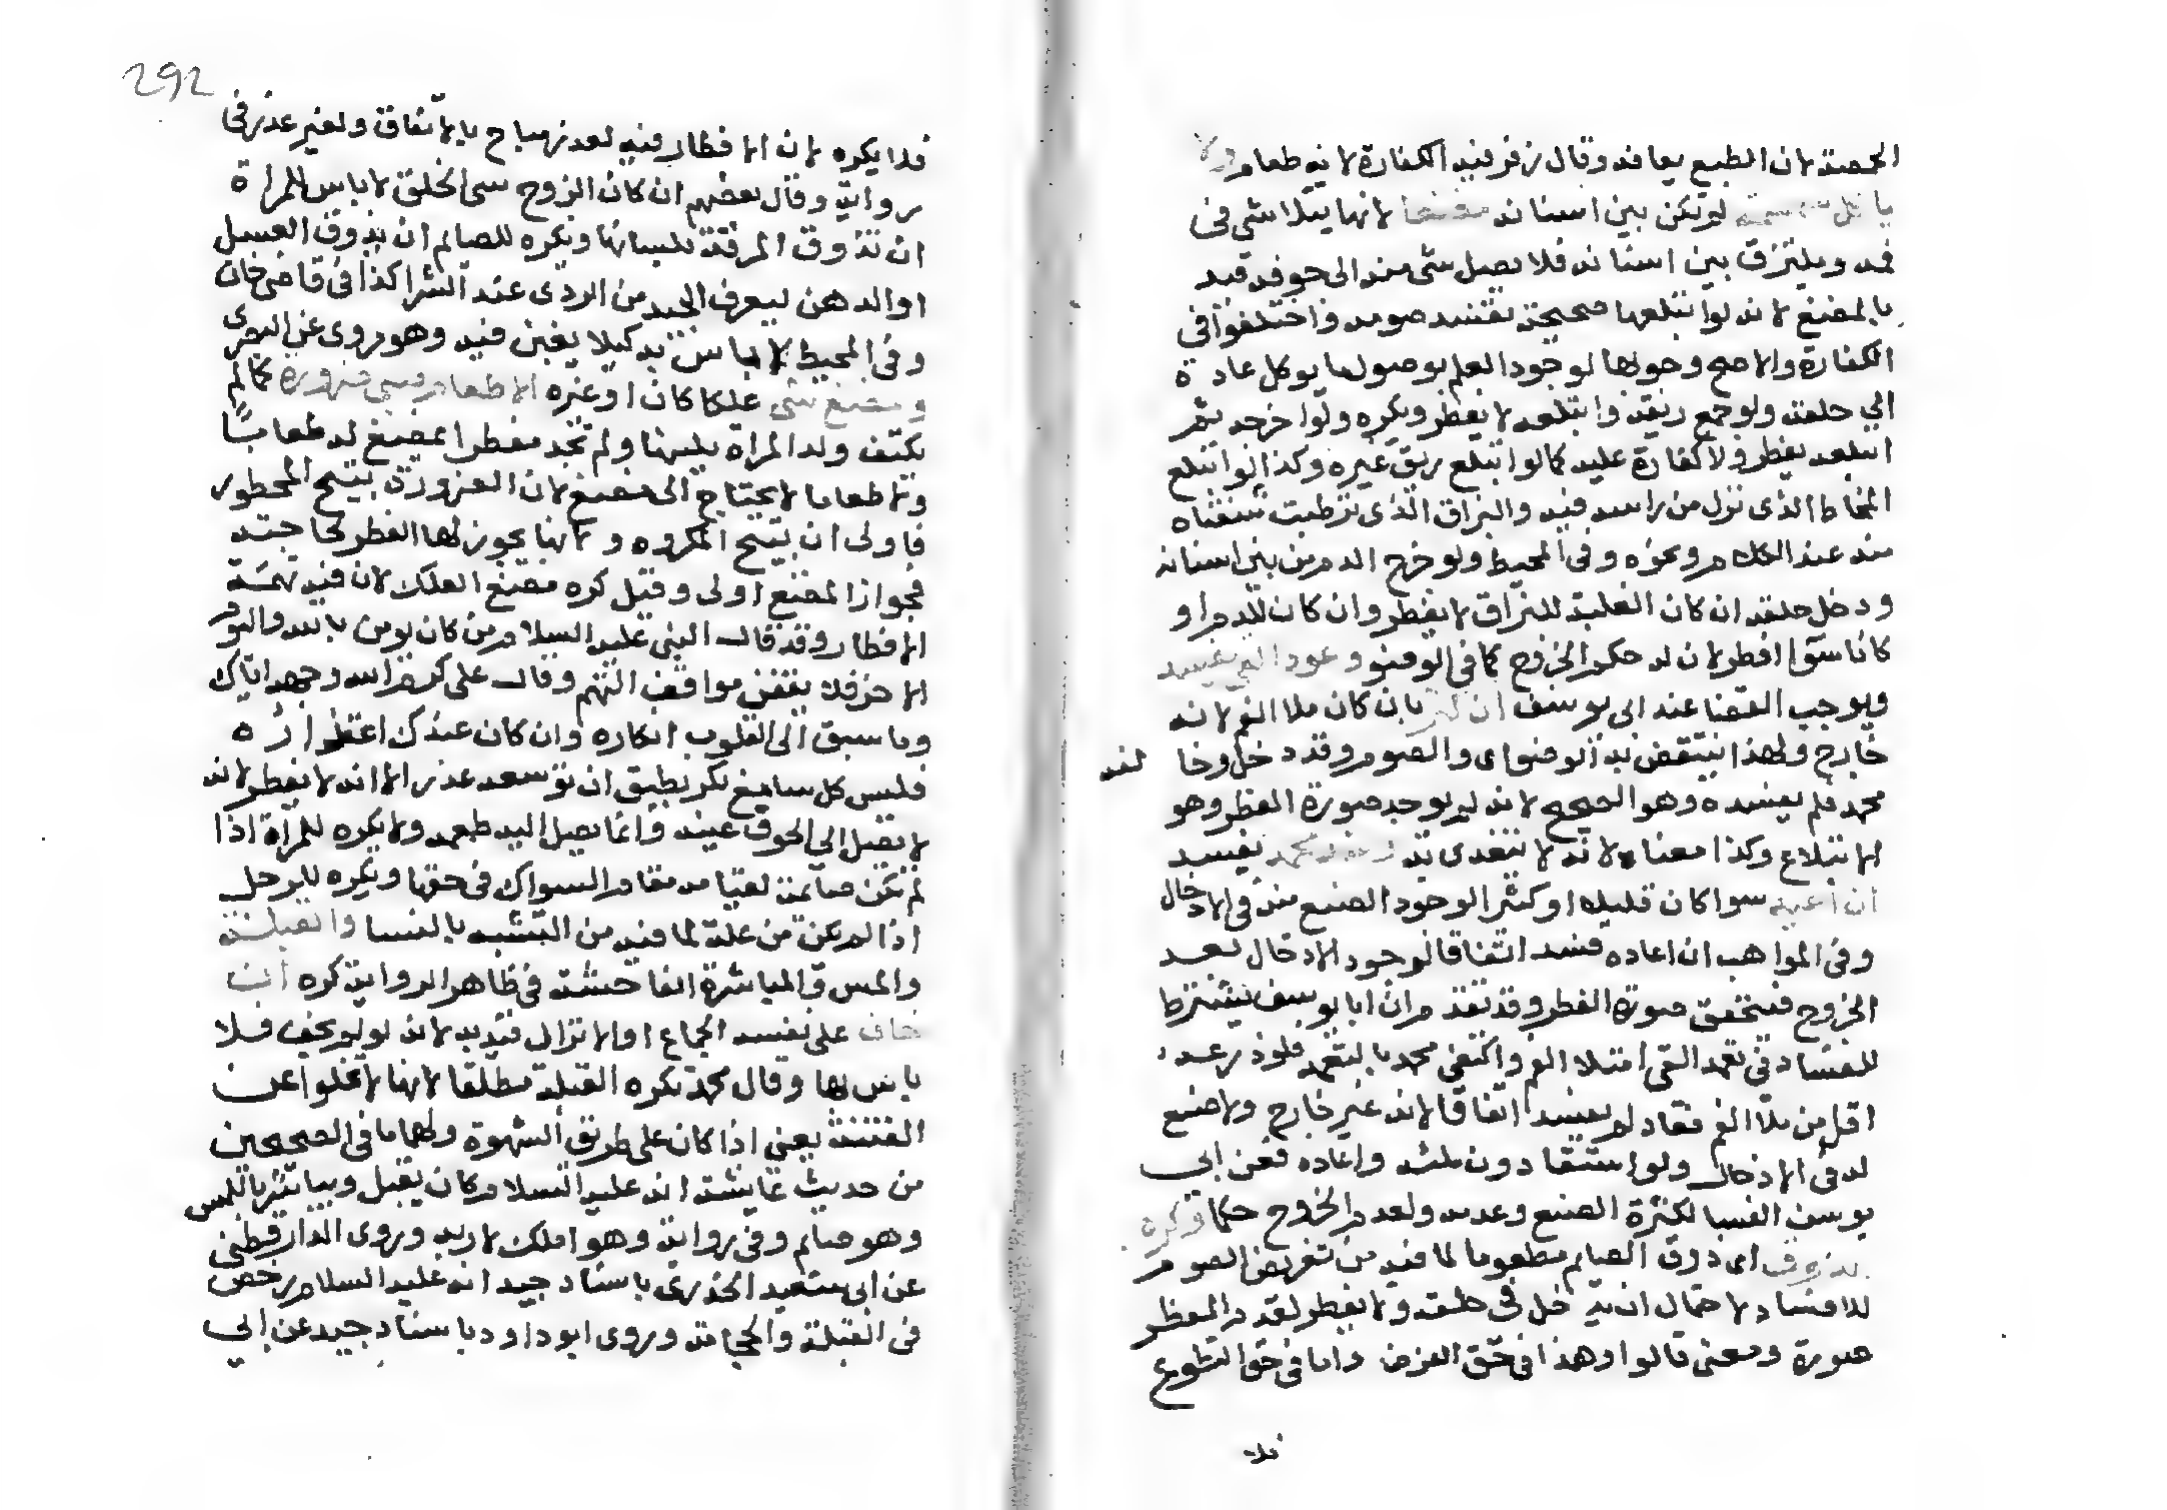 الحمصة لان الطبع يعافه وقال زفر فيه الكفارة لانه طعام ولا
يا كل سمسمة لم تكن بين اسنانه مضغها لانها يتلاشى في
فمه ويلتزق بين اسنانه فلا يصل شئ منه الى جوفه قيد
بالمضغ لانه لو ابتلعها صحيحة تفسد صومه واختلفوا في
الكفارة والاصح وجوبها لوجود العلم بوصول ما يوكل عادة
الي حلقه ولو جمع ريقه وابتلعه لا يفطر ويكره ولو اخرجه ثم
ابتلعه يفطر ولا كفارة عليه كما لو ابتلع ريق غيره وكذا لو ابتلع
المخاط الذى نزل من راسه فيه والبزاق الذى ترطبت شفتاه
منه عند الكلام ونحوه وفى المحيط ولو خرج الدم من بين اسنانه
ودخل حلقه ان كان الغلبة للبزاق لا يفطر وان كان للدم او
كانا سوآ افطر لان له حكم الخروج كما فى الوضو وعود القي يفسد
ويوجب القضا عند ابى يوسف ان كثر بان كان ملا الفم لانه
خارج ولهذا ينتقض به الوضو اى والصوم وقد دخل وخالفه
محمد فلم يفسده وهو الصحيح لانه لم يوجد صورة الفطر وهو
الابتلاع وكذا معناه لانه لا يتغدى به وعند محمد يفسد
ان اعيد سوا كان قليلا او كثيرا لوجود الصنع منه في الادخال
وفى المواهب ان اعاده فسد اتفاقا لوجود الادخال بعد
الخروج فتتحقق صورة الفطر وقد تقدم ان ابا يوسف يشترط
للفساد في تعمد القى امتلا الفم واكتفى محمد بالتعمد فلو ذرعه
اقل من ملا الفم فعاد لم يفسد اتفاقا لانه غير خارج ولا صنع
له في الادخال ولو استقا دون ملئه واعاده فعن ابى
يوسف الفسا لكثرة الصنع وعدمه ولعدم الخروج حكما وكره
له ذوق اى ذوق الصايم مطعوما لما فيه من تعريض الصوم
للافساد لاحتمال ان يدخل في حلقه ولا يفطر لعدم المفطر
صورة ومعنى قالوا وهذا في حق الفرض واما في حق التطوع
فلا
292
فلا يكره لان الافطار فيه لعذر مباح بالاتفاق ولغير عذر في
رواية وقال بعضهم ان كان الزوج سى الخلق لا باس للمراة
ان تذوق المرقة بلسانها ويكره للصايم ان يذوق العسل
او الدهن ليعرف الجيد من الردى عند الشرا كذا في قاضى خان
وفى المحيط لا باس به كيلا يغبن فيه وهو مروى عن البصرى
ومضغ شى علكا كان او غيره الا طعام صبي ضرورة كما لم
يكتف ولد المراة بلبنها ولم تجد مفطرا يمضغ له طعاما
ولا طعاما لا يحتاج الى مضغ لان الضرورة تبيح المحظور
فاولى ان تبيح المكروه ولانها يجوز لها الفطر لحاجته
فجواز المضغ اولى وقيل كره مضغ العلك لان فيه تهمة
الافطار وقد قال النبى عليه السلام من كان يومن بالله واليوم
الاخر فلا يقفن مواقف التهم وقال على كرم الله وجهه اياك
وما سبق الى القلوب انكاره وان كان عندك اعتذاره
فليس كل سامع نكر يطيق ان توسعه عذرا الا انه لا يفطر لانه
لا يصل الى الجوف عينه وانما يصل اليه طعمه ولا يكره للمراة اذا
لم تكن صائمة لقيامه مقام السواك في حقها ويكره للرجل
اذا لم يكن من علة لما فيه من التشبه بالنسا والقبلة
والمس والمباشرة الفاحشة في ظاهر الرواية كره ان
خاف على نفسه الجماع او الانزال قيد به لانه لو لم يخف فلا
باس بها وقال محمد تكره القبلة مطلقا لانها لا تخلوا عن
الفتنة يعنى اذا كان على طريق الشهوة ولهما ما فى الصحيحين
من حديث عايشة انه عليه السلام كان يقبل ويباشر باللمس
وهو صايم وفى رواية وهو املك لاربه وروى الدارقطنى
عن ابى سعيد الخذرى باسناد جيد انه عليه السلام رخص
فى القبلة والحجامة وروى ابو داود باسناد جيد عن ابي